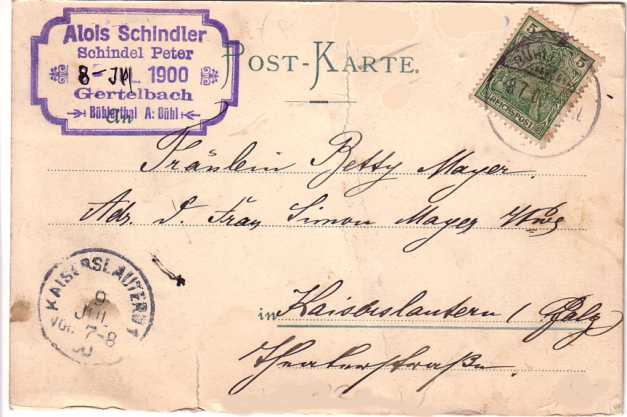 Alois Schindler
Schindel Peter
8-JUL. 1900
Gertelbach
Bühlerthal A: Bühl
POST-KARTE.
5 5
REICHSPOST
An
Fräulein Betty Mayer.
Adr. d. Frau Simon Mayer Wwe
in Kaiserslautern / Pfalz
Theaterstraße.
KAISERSLAUTERN 1
9
JUL
VOR. 7-8
00